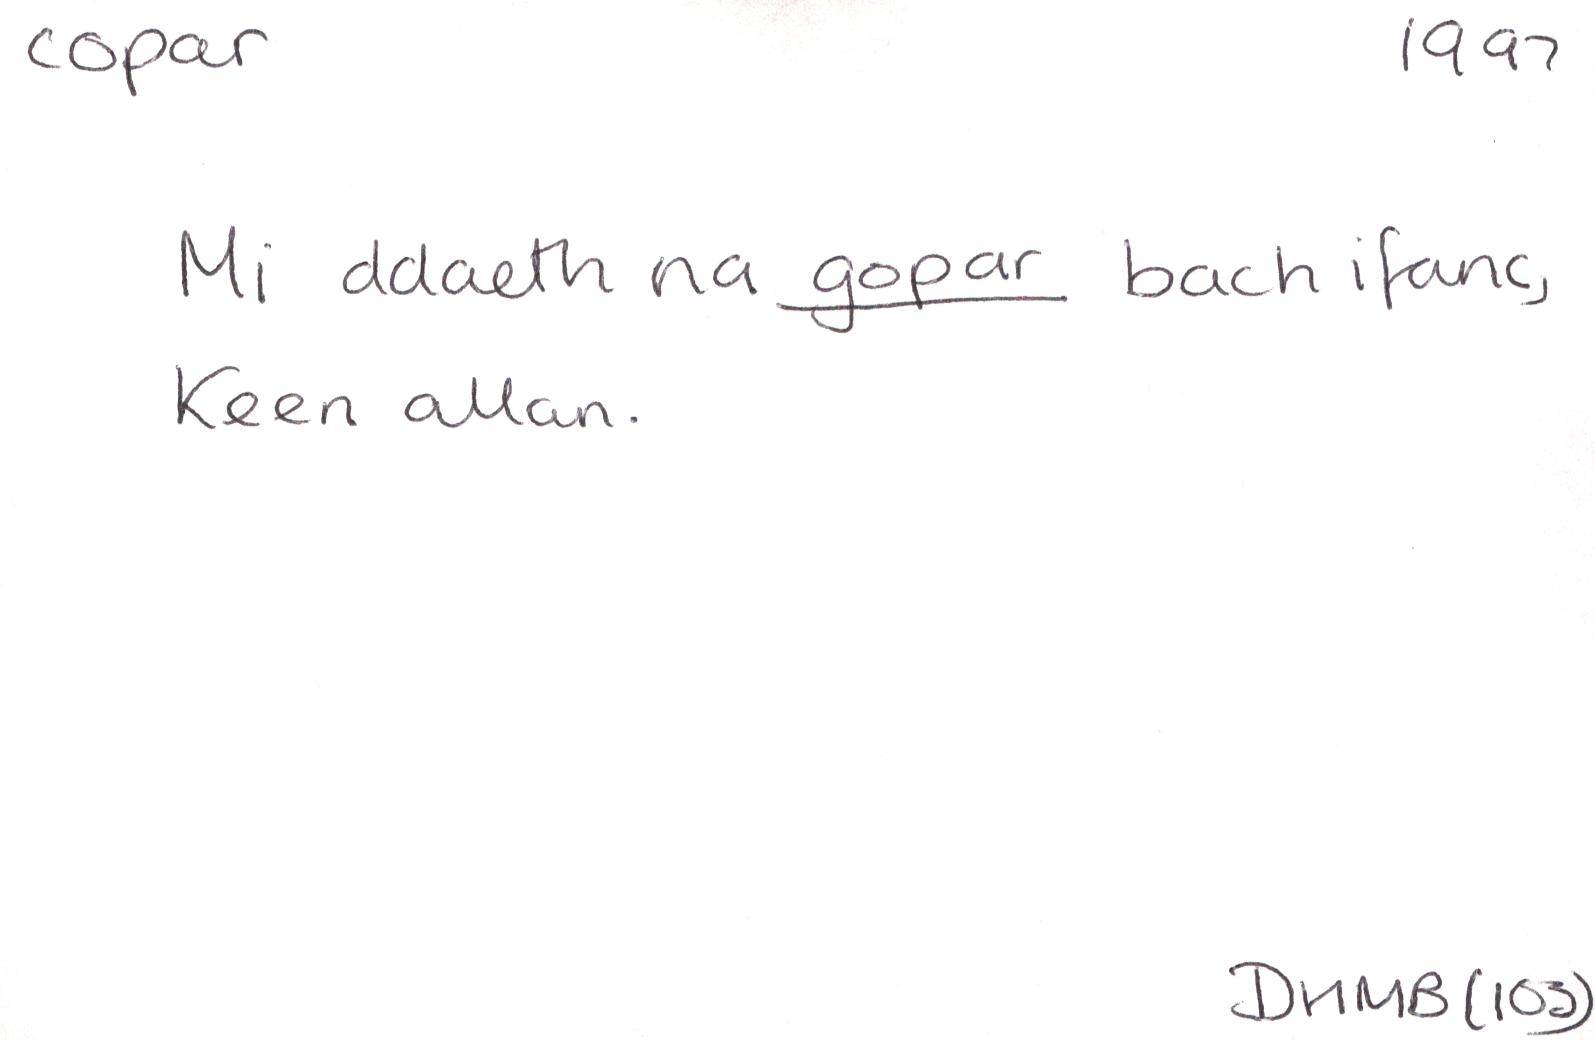 copar 1997
Mi ddaeth na gopar bach ifanc,
Keen allan.
DHMB (103)